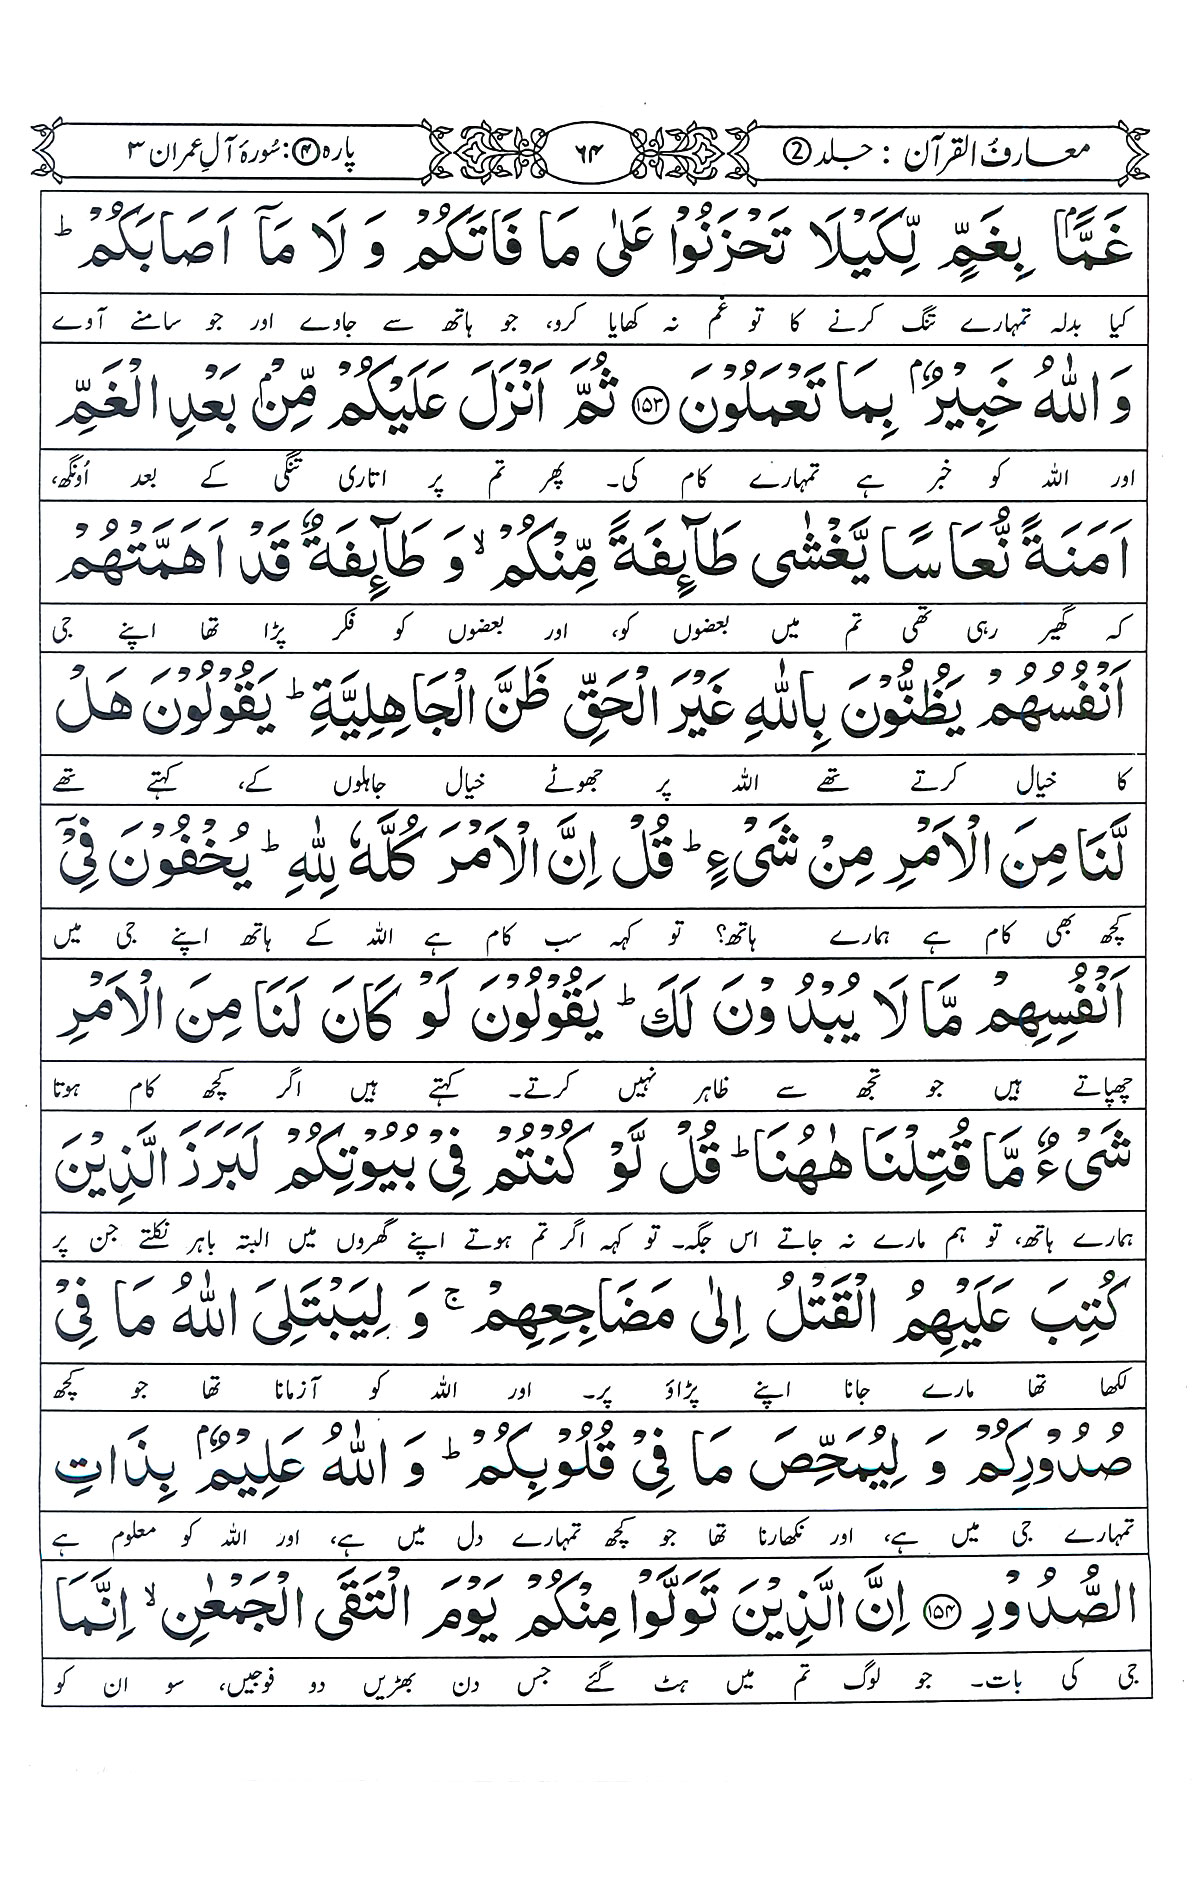 معارفُ القرآن : جلد ②
۶۴
پارہ ④ : سُورۂ آلِ عمران ۳
غَمًّۢا بِغَمٍّ لِّكَيْلَا تَحْزَنُوْا عَلٰى مَا فَاتَكُمْ وَ لَا مَاۤ اَصَابَكُمْ ؕ
کیا بدلہ تمہارے تنگ کرنے کا تو غم نہ کھایا کرو، جو ہاتھ سے جاوے اور جو سامنے آوے
وَ اللّٰهُ خَبِيْرٌۢ بِمَا تَعْمَلُوْنَ ﴿۱۵۳﴾ ثُمَّ اَنْزَلَ عَلَيْكُمْ مِّنْۢ بَعْدِ الْغَمِّ
اور اللہ کو خبر ہے تمہارے کام کی۔ پھر تم پر اتاری تنگی کے بعد اُونگھ،
اَمَنَةً نُّعَاسًا يَّغْشٰى طَآىِٕفَةً مِّنْكُمْ ۙ وَ طَآىِٕفَةٌ قَدْ اَهَمَّتْهُمْ
کہ گھیر رہی تھی تم میں بعضوں کو، اور بعضوں کو فکر پڑا تھا اپنے جی
اَنْفُسُهُمْ يَظُنُّوْنَ بِاللّٰهِ غَيْرَ الْحَقِّ ظَنَّ الْجَاهِلِيَّةِ ؕ يَقُوْلُوْنَ هَلْ
کا خیال کرتے تھے اللہ پر جھوٹے خیال جاہلوں کے، کہتے تھے
لَّنَا مِنَ الْاَمْرِ مِنْ شَيْءٍ ؕ قُلْ اِنَّ الْاَمْرَ كُلَّهٗ لِلّٰهِ ؕ يُخْفُوْنَ فِيْۤ
کچھ بھی کام ہے ہمارے ہاتھ؟ تو کہہ سب کام ہے اللہ کے ہاتھ اپنے جی میں
اَنْفُسِهِمْ مَّا لَا يُبْدُوْنَ لَكَ ؕ يَقُوْلُوْنَ لَوْ كَانَ لَنَا مِنَ الْاَمْرِ
چھپاتے ہیں جو تجھ سے ظاہر نہیں کرتے۔ کہتے ہیں اگر کچھ کام ہوتا
شَيْءٌ مَّا قُتِلْنَا هٰهُنَا ؕ قُلْ لَّوْ كُنْتُمْ فِيْ بُيُوْتِكُمْ لَبَرَزَ الَّذِيْنَ
ہمارے ہاتھ، تو ہم مارے نہ جاتے اس جگہ۔ تو کہہ اگر تم ہوتے اپنے گھروں میں البتہ باہر نکلتے جن پر
كُتِبَ عَلَيْهِمُ الْقَتْلُ اِلٰى مَضَاجِعِهِمْ ۚ وَ لِيَبْتَلِيَ اللّٰهُ مَا فِيْ
لکھا تھا مارے جانا اپنے پڑاؤ پر۔ اور اللہ کو آزمانا تھا جو کچھ
صُدُوْرِكُمْ وَ لِيُمَحِّصَ مَا فِيْ قُلُوْبِكُمْ ؕ وَ اللّٰهُ عَلِيْمٌۢ بِذَاتِ
تمہارے جی میں ہے، اور نکھارنا تھا جو کچھ تمہارے دل میں ہے، اور اللہ کو معلوم ہے
الصُّدُوْرِ ﴿۱۵۴﴾ اِنَّ الَّذِيْنَ تَوَلَّوْا مِنْكُمْ يَوْمَ الْتَقَى الْجَمْعٰنِ ۙ اِنَّمَا
جی کی بات۔ جو لوگ تم میں ہٹ گئے جس دن بھڑیں دو فوجیں، سو ان کو